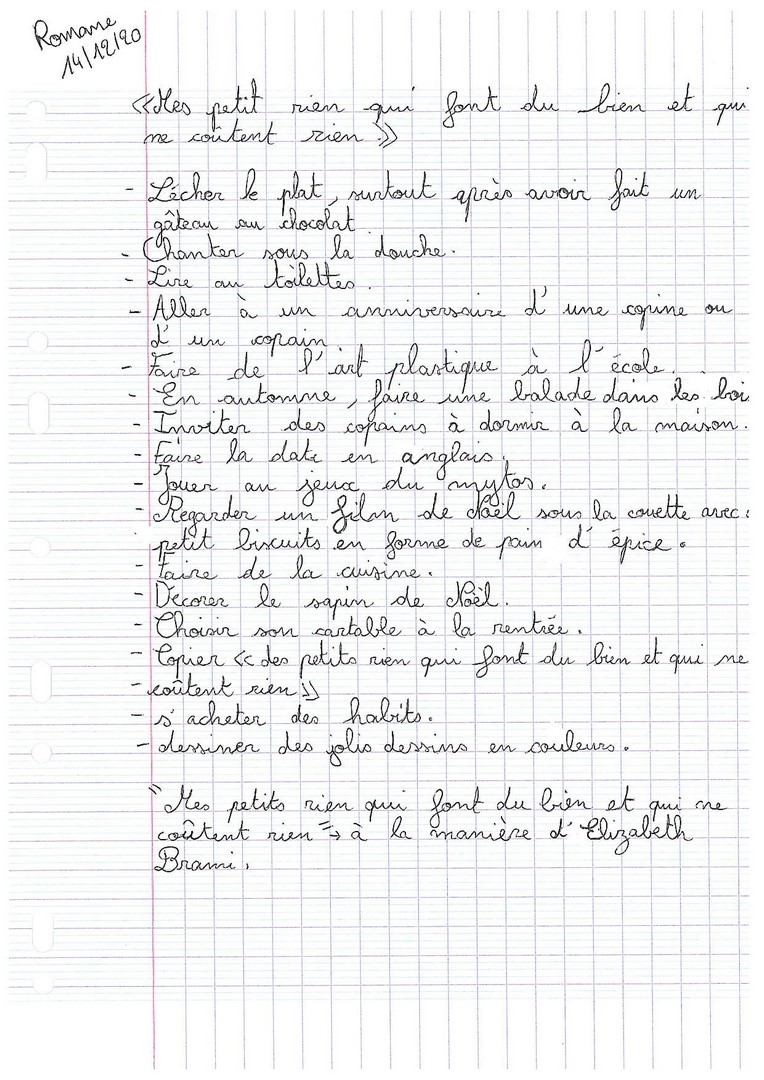 Romane
14/12/20
«Mes petit rien qui font du bien et qui
ne coûtent rien »
- Lécher le plat, surtout après avoir fait un
gâteau au chocolat
- Chanter sous la douche.
- Lire au toilettes.
- Aller à un anniversaire d'une copine ou
d'un copain
- Faire de l'art plastique à l'école.
- En automne, faire une balade dans les boi
- Inviter des copains à dormir à la maison.
- Faire la date en anglais.
- Jouer au jeux du mytos.
- Regarder un film de Noël sous la couette avec
petit biscuits en forme de pain d'épice.
- Faire de la cuisine.
- Décorer le sapin de Noël.
- Choisir son cartable à la rentrée.
- Copier «des petits rien qui font du bien et qui ne
- coûtent rien»
- s'acheter des habits.
- dessiner des jolis dessins en couleurs.
"Mes petits rien qui font du bien et qui ne
coûtent rien" → à la manière d'Elizabeth
Brami.